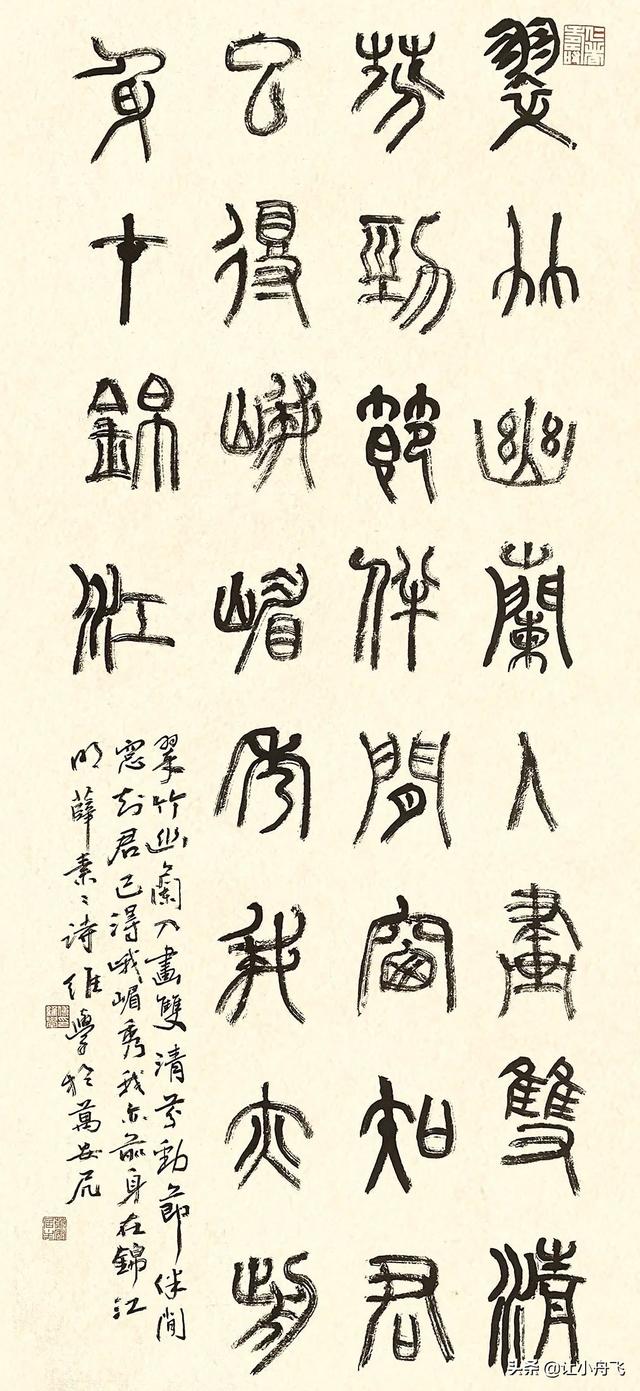 翠竹幽蘭入畫雙清
芬勁節伴閒窗知君
已得峨嵋秀我亦前
身在錦江
翠竹幽蘭入畫雙清芬勁節伴閒
窗知君已得峨嵋秀我亦前身在錦江
明薛素〻诗維學於萬安居
头条 @让小舟飞